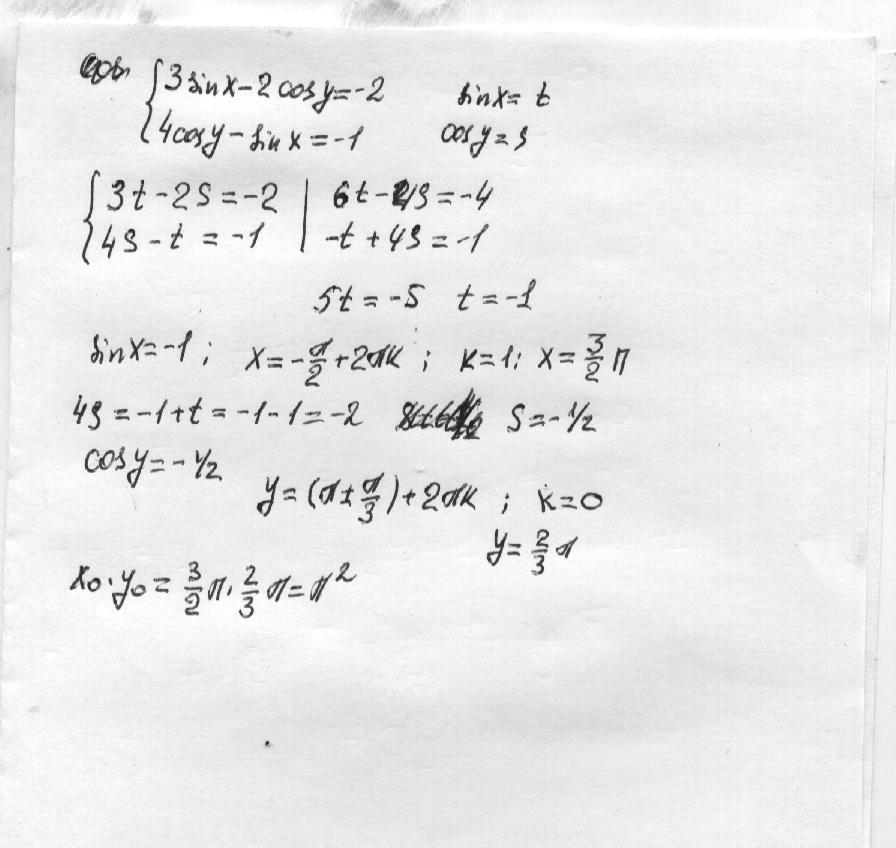 {3 sin x - 2 cos y = -2 sin x = t
{4 cos y - sin x = -1 cos y = s
{3t - 2S = -2 | 6t - 4S = -4
{4S - t = -1 | -t + 4S = -1
5t = -5 t = -1
sin x = -1 ; x = -π/2 + 2πk ; k = 1: x = 3/2 π
4S = -1 + t = -1 - 1 = -2 S = -1/2
cos y = -1/2
y = (π ± π/3) + 2πk ; k = 0
y = 2/3 π
x₀ · y₀ = 3/2 π · 2/3 π = π²